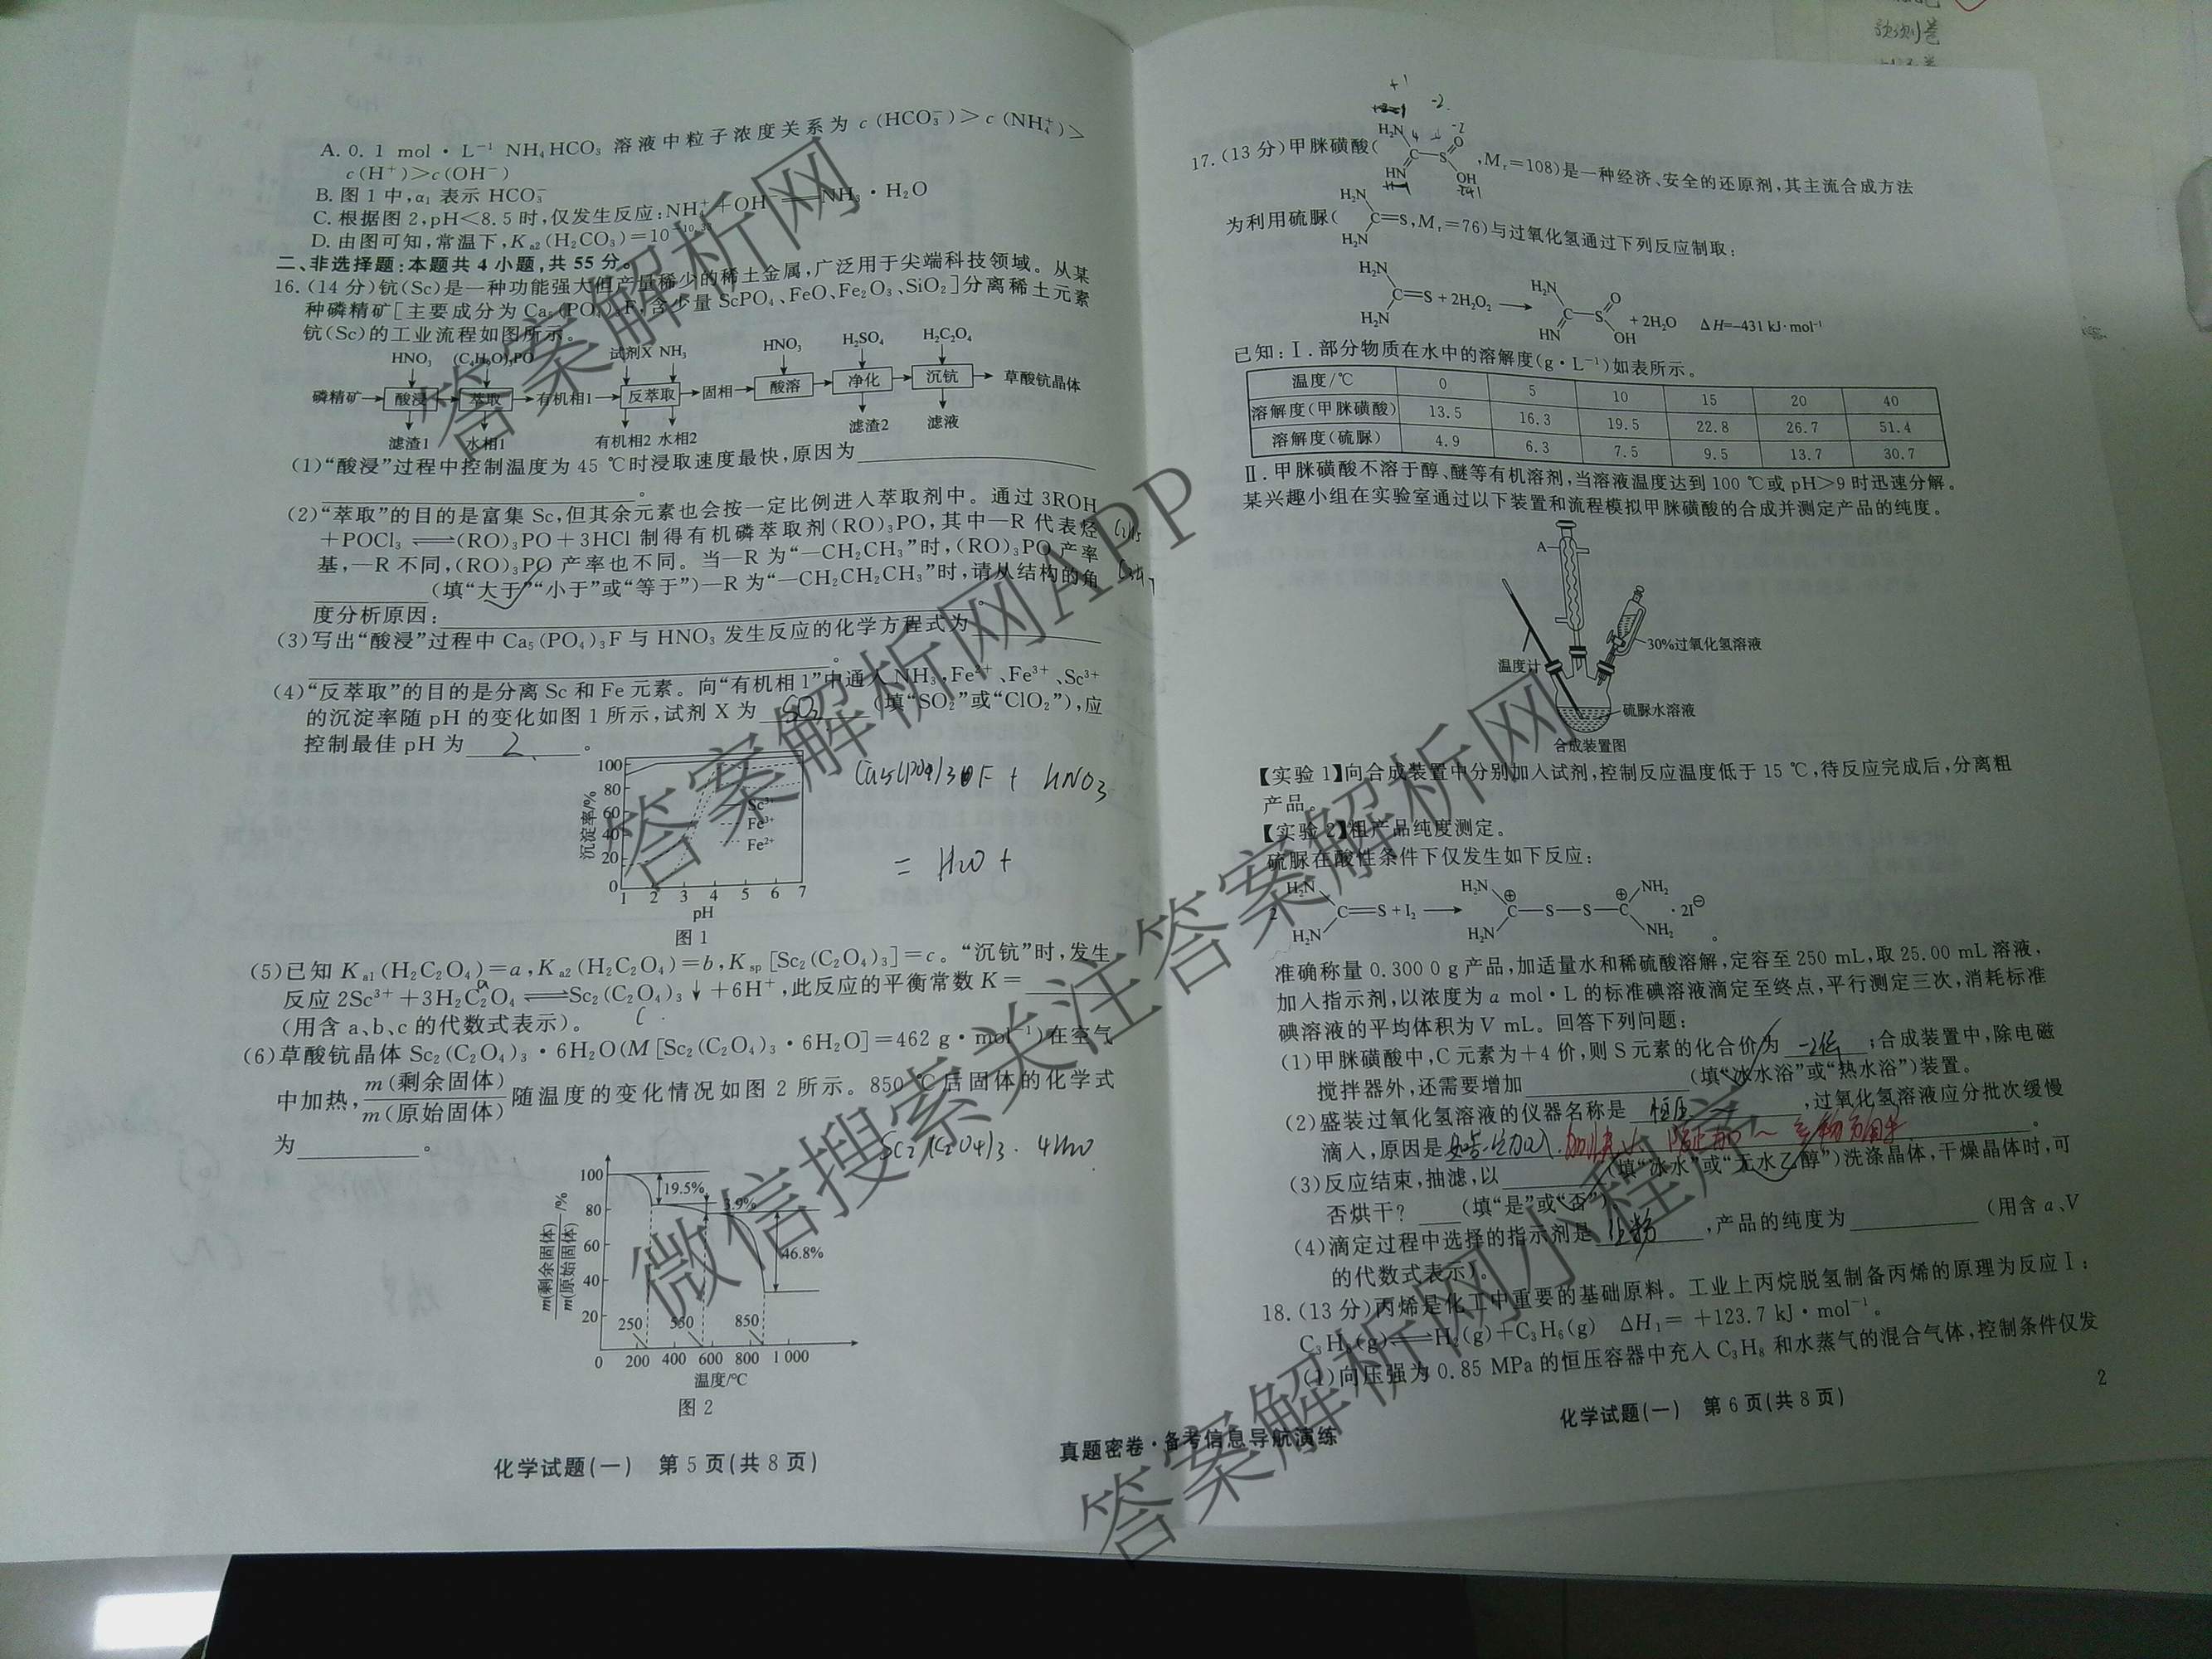 A. 0. 1 mol · L⁻¹ NH₄HCO₃ 溶液中粒子浓度关系为 c (HCO₃⁻)＞c (NH₄⁺)＞
c(H⁺)＞c(OH⁻)
B. 图 1 中,α₁ 表示 HCO₃⁻
C. 根据图 2,pH＜8. 5 时,仅发生反应:NH₄⁺+OH⁻══NH₃ · H₂O
D. 由图可知,常温下,Kₐ₂(H₂CO₃)=10
二、非选择题:本题共 4 小题,共 55 分。
16. (14 分)钪(Sc)是一种功能强大但产量稀少的稀土金属,广泛用于尖端科技领域。从某
种磷精矿[主要成分为 Ca₅(PO₄)₃F,含少量 ScPO₄、FeO、Fe₂O₃、SiO₂]分离稀土元素
钪(Sc)的工业流程如图所示。
HNO₃ (C₄H₉O)₃PO 试剂X NH₃ HNO₃ H₂SO₄ H₂C₂O₄
磷精矿 酸浸 萃取 有机相1 反萃取 固相 酸溶 净化 沉钪 草酸钪晶体
滤渣1 水相1 有机相2 水相2 滤渣2 滤液
(1)“酸浸”过程中控制温度为 45 ℃时浸取速度最快,原因为
。
(2)“萃取”的目的是富集 Sc,但其余元素也会按一定比例进入萃取剂中。通过 3ROH
+POCl₃ ⇌(RO)₃PO+3HCl 制得有机磷萃取剂(RO)₃PO,其中—R 代表烃
基,—R 不同,(RO)₃PO 产率也不同。当—R 为“—CH₂CH₃”时,(RO)₃PO 产率
(填“大于”“小于”或“等于”)—R 为“—CH₂CH₂CH₃”时,请从结构的角
度分析原因:            。
(3)写出“酸浸”过程中 Ca₅(PO₄)₃F 与 HNO₃ 发生反应的化学方程式为
。
(4)“反萃取”的目的是分离 Sc 和 Fe 元素。向“有机相 1”中通入 NH₃,Fe²⁺、Fe³⁺、Sc³⁺
的沉淀率随 pH 的变化如图 1 所示,试剂 X 为 SO₂ (填“SO₂”或“ClO₂”),应
控制最佳 pH 为 2 。
沉淀率/%
100
80
60
40
20
0
Sc³⁺
Fe³⁺
Fe²⁺
1 2 3 4 5 6 7
pH
图 1
Ca₅(PO₄)₃F + HNO₃
= H₂O +
(5)已知 Kₐ₁(H₂C₂O₄)=a,Kₐ₂(H₂C₂O₄)=b,Kₛₚ[Sc₂(C₂O₄)₃]=c。“沉钪”时,发生
反应 2Sc³⁺+3H₂C₂O₄⇌Sc₂(C₂O₄)₃↓+6H⁺,此反应的平衡常数 K=
(用含 a、b、c 的代数式表示)。
(6)草酸钪晶体 Sc₂(C₂O₄)₃ · 6H₂O(M [Sc₂(C₂O₄)₃ · 6H₂O]=462 g · mol⁻¹)在空气
中加热,m(剩余固体)/m(原始固体)随温度的变化情况如图 2 所示。850 ℃后固体的化学式
为        。
Sc₂(C₂O₄)₃ · 4H₂O
m(剩余固体)/m(原始固体)/%
100
80
60
40
20
0
19.5%
3.9%
46.8%
250 550 850
200 400 600 800 1 000
温度/℃
图 2
化学试题(一) 第 5 页(共 8 页)
17. (13 分)甲脒磺酸(H₂N C HN S O OH,Mᵣ=108)是一种经济、安全的还原剂,其主流合成方法
为利用硫脲(H₂N H₂N C=S,Mᵣ=76)与过氧化氢通过下列反应制取:
H₂N H₂N C=S+2H₂O₂ → H₂N HN C S O OH +2H₂O ΔH=−431 kJ·mol⁻¹
已知:Ⅰ. 部分物质在水中的溶解度(g · L⁻¹)如表所示。
温度/℃ 0 5 10 15 20 40
溶解度(甲脒磺酸) 13.5 16.3 19.5 22.8 26.7 51.4
溶解度(硫脲) 4.9 6.3 7.5 9.5 13.7 30.7
Ⅱ. 甲脒磺酸不溶于醇、醚等有机溶剂,当溶液温度达到 100 ℃或 pH＞9 时迅速分解。
某兴趣小组在实验室通过以下装置和流程模拟甲脒磺酸的合成并测定产品的纯度。
A
温度计
30%过氧化氢溶液
硫脲水溶液
合成装置图
【实验 1】向合成装置中分别加入试剂,控制反应温度低于 15 ℃,待反应完成后,分离粗
产品。
【实验 2】粗产品纯度测定。
硫脲在酸性条件下仅发生如下反应:
2 H₂N H₂N C=S+I₂ → H₂N H₂N C⊕—S—S—C⊕ NH₂ NH₂ · 2I⊖
。
准确称量 0.300 0 g 产品,加适量水和稀硫酸溶解,定容至 250 mL,取 25.00 mL 溶液,
加入指示剂,以浓度为 a mol · L 的标准碘溶液滴定至终点,平行测定三次,消耗标准
碘溶液的平均体积为 V mL。回答下列问题:
(1)甲脒磺酸中,C 元素为+4 价,则 S 元素的化合价为        ;合成装置中,除电磁
搅拌器外,还需要增加        (填“冰水浴”或“热水浴”)装置。
(2)盛装过氧化氢溶液的仪器名称是 恒压        ,过氧化氢溶液应分批次缓慢
滴入,原因是        。
(3)反应结束,抽滤,以        (填“冰水”或“无水乙醇”)洗涤晶体,干燥晶体时,可
否烘干?    (填“是”或“否”)
(4)滴定过程中选择的指示剂是        ,产品的纯度为        (用含 a、V
的代数式表示)。
18. (13 分)丙烯是化工中重要的基础原料。工业上丙烷脱氢制备丙烯的原理为反应Ⅰ:
C₃H₈(g)⇌H₂(g)+C₃H₆(g) ΔH₁= +123.7 kJ · mol⁻¹。
(1)向压强为 0.85 MPa 的恒压容器中充入 C₃H₈ 和水蒸气的混合气体,控制条件仅发
2
化学试题(一) 第 6 页(共 8 页)
真题密卷·备考信息导航演练
预测卷
答案解析网
答案解析网APP
微信搜索关注答案解析网
答案解析网小程序